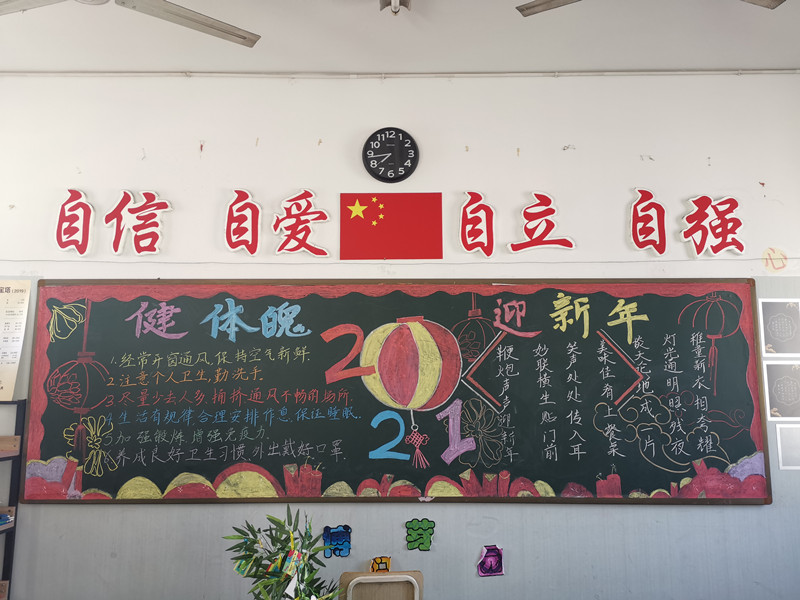 自信 自爱 自立 自强
健体魄
1.经常开窗通风,保持空气新鲜.
2.注意个人卫生,勤洗手.
3.尽量少去人多,拥挤通风不畅的场所.
4.生活有规律合理安排作息,保证睡眠.
5.加强锻炼 增强免疫力.
6.养成良好卫生习惯 外出戴好口罩.
2021
迎新年
鞭炮声声迎新年
妙联横生贴门前
笑声处处传入耳
美味佳肴上餐桌
成一片
灯光通明照残夜
稚童新衣相夸耀
心